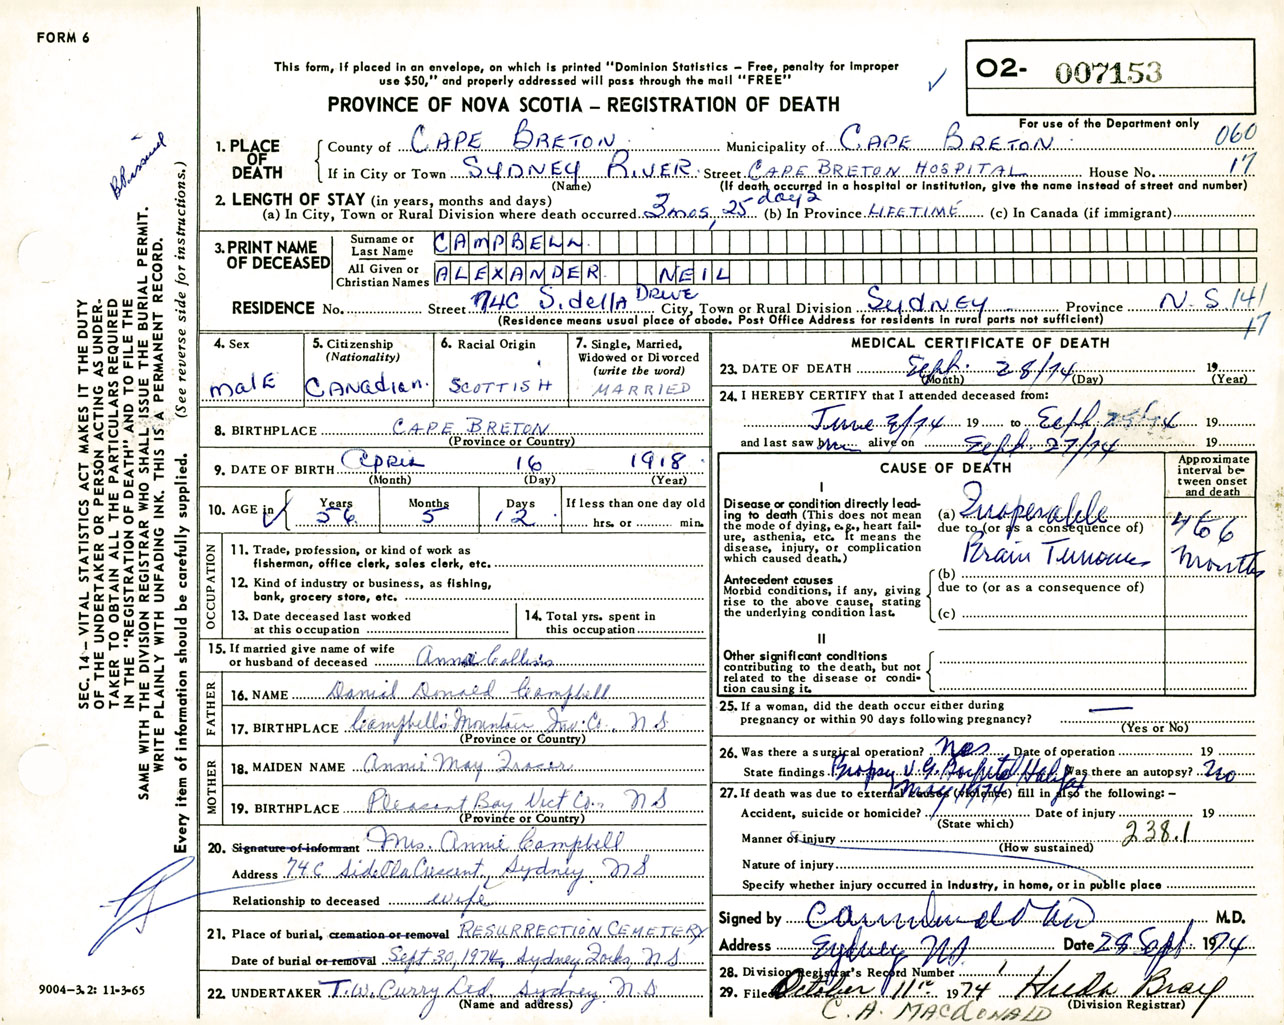 FORM 6
This form, if placed in an envelope, on which is printed "Dominion Statistics – Free, penalty for improper
use $50," and properly addressed will pass through the mail "FREE"
PROVINCE OF NOVA SCOTIA – REGISTRATION OF DEATH
O2- 007153
For use of the Department only
060
17
1. PLACE OF DEATH
County of CAPE BRETON Municipality of CAPE BRETON
If in City or Town SYDNEY RIVER Street CAPE BRETON HOSPITAL House No.
(Name) (If death occurred in a hospital or institution, give the name instead of street and number)
2. LENGTH OF STAY (in years, months and days)
(a) In City, Town or Rural Division where death occurred 3 mos, 25 days (b) In Province LIFETIME (c) In Canada (if immigrant)
3. PRINT NAME OF DECEASED
Surname or Last Name CAMPBELL
All Given or Christian Names ALEXANDER NEIL
RESIDENCE No. Street 74C Sidella DRIVE City, Town or Rural Division Sydney Province N.S. 141
17
(Residence means usual place of abode. Post Office Address for residents in rural parts not sufficient)
4. Sex
male
5. Citizenship
(Nationality)
CANadian.
6. Racial Origin
SCOTTISH
7. Single, Married,
Widowed or Divorced
(write the word)
MARRIED
8. BIRTHPLACE CAPE BRETON
(Province or Country)
9. DATE OF BIRTH April 16 1918
(Month) (Day) (Year)
10. AGE in Years 56 Months 5 Days 12 If less than one day old
hrs. or min.
OCCUPATION
11. Trade, profession, or kind of work as
fisherman, office clerk, sales clerk, etc.
12. Kind of industry or business, as fishing,
bank, grocery store, etc.
13. Date deceased last worked
at this occupation
14. Total yrs. spent in
this occupation
15. If married give name of wife
or husband of deceased Annie Collins
FATHER
16. NAME Daniel Donald Campbell
17. BIRTHPLACE Campbell's Mountain Inv. Co. NS
(Province or Country)
MOTHER
18. MAIDEN NAME Annie May Fraser
19. BIRTHPLACE Pleasant Bay Vict Co. NS
(Province or Country)
20. Signature of informant Mrs. Annie Campbell
Address 74C Sidella Crescent, Sydney NS
Relationship to deceased wife
21. Place of burial, cremation or removal RESURRECTION CEMETERY
Date of burial or removal Sept 30, 1974, Sydney Forks, N.S.
22. UNDERTAKER T.W. Curry Ltd, Sydney N.S
(Name and address)
MEDICAL CERTIFICATE OF DEATH
23. DATE OF DEATH Sept. 28/74 19
(Month) (Day) (Year)
24. I HEREBY CERTIFY that I attended deceased from:
June 3/74 19 to Sept. /74 19
and last saw him alive on Sept. 27/74 19
CAUSE OF DEATH
Approximate
interval be-
tween onset
and death
I
Disease or condition directly lead-
ing to death (This does not mean
the mode of dying, e.g., heart fail-
ure, asthenia, etc. It means the
disease, injury, or complication
which caused death.)
(a) Inoperable
due to (or as a consequence of)
Brain Tumour
4 to 6
Months
Antecedent causes
Morbid conditions, if any, giving
rise to the above cause, stating
the underlying condition last.
(b)
due to (or as a consequence of)
(c)
II
Other significant conditions
contributing to the death, but not
related to the disease or condi-
tion causing it.
25. If a woman, did the death occur either during
pregnancy or within 90 days following pregnancy? —
(Yes or No)
26. Was there a surgical operation? Yes Date of operation 19
State findings Biopsy V.G. Hospital Halifax Was there an autopsy? No
May 1974
27. If death was due to external causes (violence) fill in also the following: –
Accident, suicide or homicide? Date of injury 19
(State which)
Manner of injury 238.1
(How sustained)
Nature of injury
Specify whether injury occurred in industry, in home, or in public place
Signed by M.D.
Address Sydney NS Date 28 Sept 1974
28. Division Registrar's Record Number
29. Filed October 11th 1974 Hilda Bray
(Division Registrar)
C. A. MACDONALD
SEC. 14 – VITAL STATISTICS ACT MAKES IT THE DUTY
OF THE UNDERTAKER OR PERSON ACTING AS UNDER-
TAKER TO OBTAIN ALL THE PARTICULARS REQUIRED
IN THE 'REGISTRATION OF DEATH' AND TO FILE THE
SAME WITH THE DIVISION REGISTRAR WHO SHALL ISSUE THE BURIAL PERMIT.
WRITE PLAINLY WITH UNFADING INK. THIS IS A PERMANENT RECORD.
Every item of information should be carefully supplied. (See reverse side for instructions.)
9004–3.2: 11-3-65